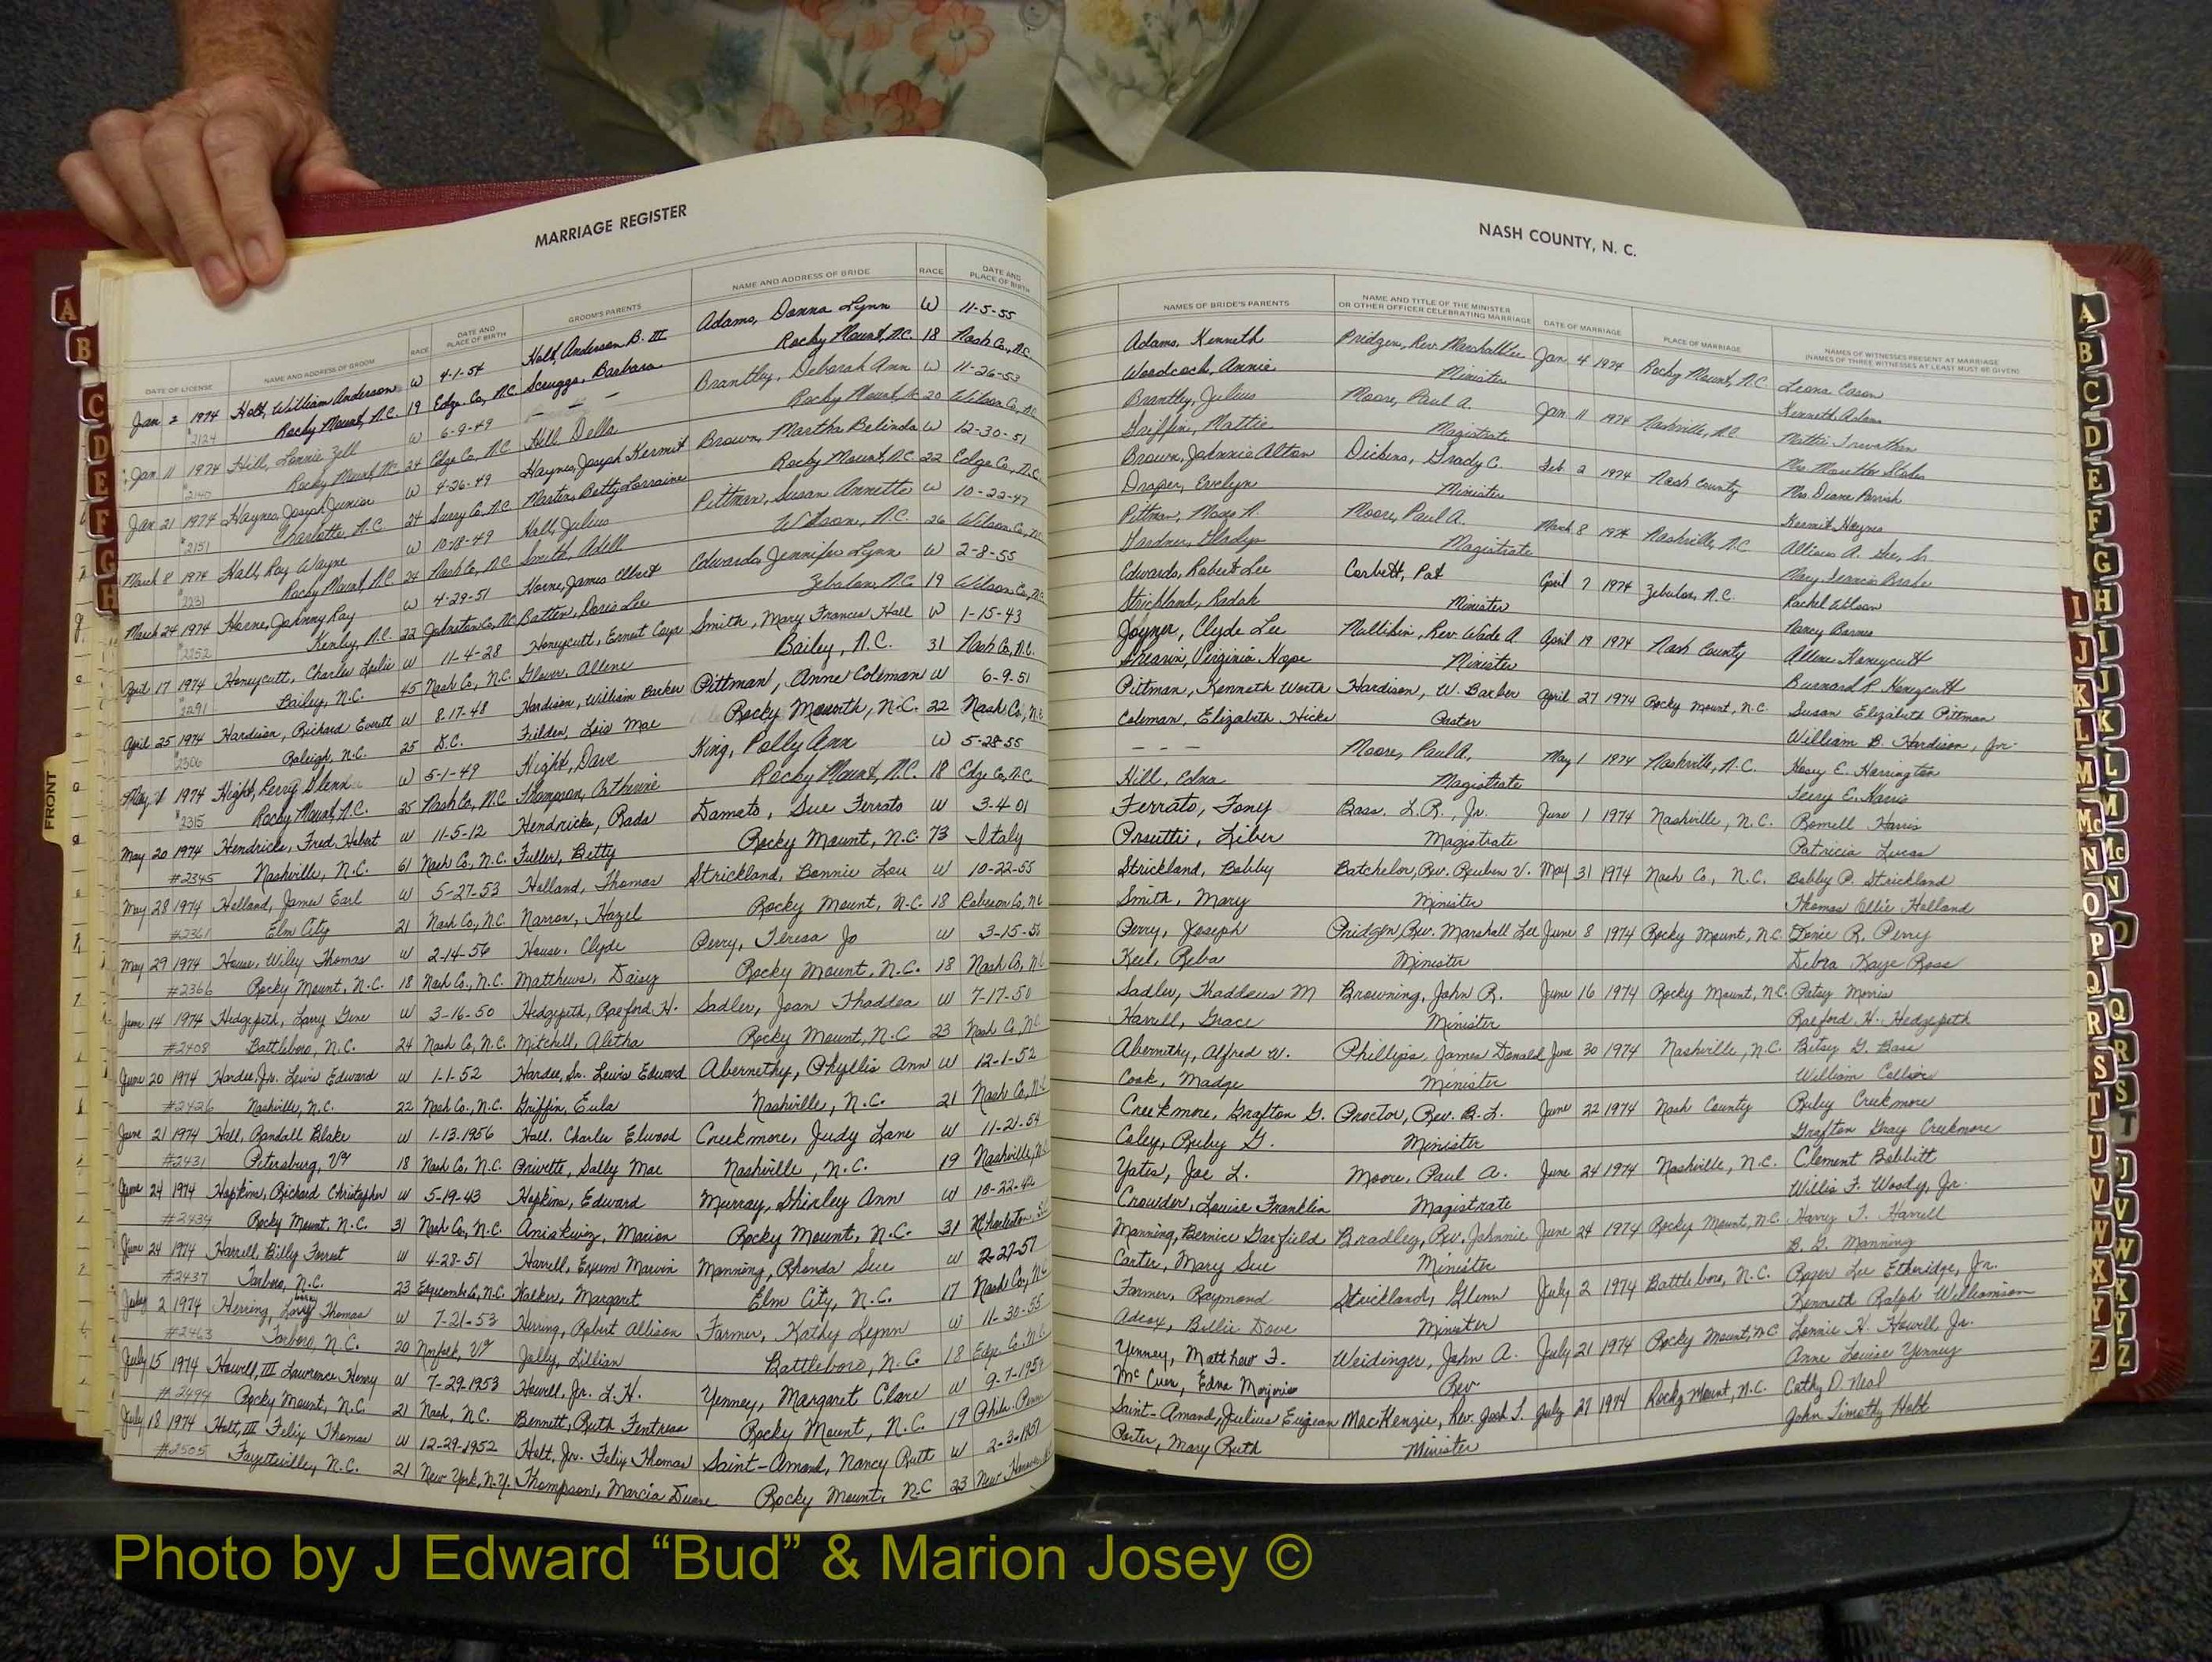 MARRIAGE REGISTER
DATE OF LICENSE NAME AND ADDRESS OF GROOM RACE DATE AND PLACE OF BIRTH GROOM'S PARENTS NAME AND ADDRESS OF BRIDE RACE DATE AND PLACE OF BIRTH
Jan 2 1974 Holt, William Anderson W 4-1-54 Holt, Anderson B. III Adams, Donna Lynn W 11-5-55
2124 Rocky Mount, N.C. 19 Edge. Co, N.C. Scruggs, Barbara Rocky Mount, N.C. 18 Nash Co, N.C.
Jan 11 1974 Hill, Lonnie Zell W 6-9-49 — — — Brantley, Deborah Ann W 11-26-53
2140 Rocky Mount, N.C. 24 Edge Co, N.C. Hill Della Rocky Mount, N.C. 20 Wilson Co, N.C.
Jan 21 1974 Haynes, Joseph Junior W 4-26-49 Haynes, Joseph Kermit Brown, Martha Belinda W 12-30-51
2151 Charlotte, N.C. 24 Surry Co, N.C. Martin, Betty Lorraine Rocky Mount, N.C. 22 Edge Co, N.C.
March 8 1974 Hall, Roy Wayne W 10-18-49 Hall, Julius Pittman, Susan Annette W 10-22-47
2231 Rocky Mount, N.C. 24 Nash Co, N.C. Smith, Adell Wilson, N.C. 26 Wilson Co, N.C.
March 24 1974 Horne, Johnny Ray W 4-29-51 Horne, James Elbert Edwards, Jennifer Lynn W 2-8-55
2252 Kenly, N.C. 22 Johnston Co, N.C. Batten, Doris Lee Zebulon, N.C. 19 Wilson Co, N.C.
April 17 1974 Honeycutt, Charles Leslie W 11-4-28 Honeycutt, Ernest Smith, Mary Frances Hall W 1-15-43
2291 Bailey, N.C. 45 Nash Co, N.C. Glover, Allene Bailey, N.C. 31 Nash Co, N.C.
April 25 1974 Hardison, Richard Everett W 8-17-48 Hardison, William Barker Pittman, Anne Coleman W 6-9-51
2306 Raleigh, N.C. 25 D.C. Lois Mae Rocky Mounth, N.C. 22 Nash Co, N.C.
May 1 1974 Hight, Perry Glenn W 5-1-49 Hight, Dave King, Polly Ann W 5-28-55
2315 Rocky Mount, N.C. 25 Nash Co, N.C. Thompson, Catherine Rocky Mount, N.C. 18 Edge Co, N.C.
May 20 1974 Hendricks, Fred Hubert W 11-5-12 Hendricks, Rada Damato, Sue Ferrato W 3-4 01
#2345 Nashville, N.C. 61 Nash Co, N.C. Fuller, Betty Rocky Mount, N.C. 73 Italy
May 28 1974 Holland, James Earl W 5-27-53 Holland, Thomas Strickland, Bonnie Lou W 10-22-55
#2361 Elm City 21 Nash Co, N.C. Narron, Hazel Rocky Mount, N.C. 18 Robeson Co, NC
May 29 1974 House, Wiley Thomas W 2-14-56 House, Clyde Perry, Teresa Jo W 3-15-56
#2366 Rocky Mount, N.C. 18 Nash Co., N.C. Matthews, Daisy Rocky Mount, N.C. 18 Nash Co, NC
June 14 1974 Hedgepeth, Larry Gene W 3-16-50 Hedgepeth, Raeford H. Sadler, Joan Thaddea W 7-17-50
#2408 Battleboro, N.C. 24 Nash Co, N.C. Mitchell, Aletha Rocky Mount, N.C 23 Nash Co, NC
June 20 1974 Hardee, Jr. Lewis Edward W 1-1-52 Hardee, Sr. Lewis Edward Abernethy, Phyllis Ann W 12-1-52
#2426 Nashville, N.C. 22 Nash Co., N.C. Griffin, Eula Nashville, N.C. 21 Nash Co, NC
June 21 1974 Hall, Randall Blake W 1-13-1956 Hall, Charles Elwood Creekmore, Judy Lane W 11-21-54
#2431 Petersburg, Va 18 Nash Co, N.C. Privette, Sally Mae Nashville, N.C. 19 Nashville, N.C.
June 24 1974 Hopkins, Richard Christopher W 5-19-43 Hopkins, Edward Murray, Shirley Ann W 10-22-42
#2434 Rocky Mount, N.C. 31 Nash Co, N.C. Marion Rocky Mount, N.C. 31 Charleston, S.C.
June 24 1974 Harrell, Billy Forrest W 4-28-51 Harrell, Exum Marvin Manning, Rhonda Sue W 2-27-57
#2437 Tarboro, N.C. 23 Edgecombe Co, N.C. Walker, Margaret Elm City, N.C. 17 Nash Co, NC
July 2 1974 Herring, Larry Thomas W 7-21-53 Herring, Robert Allison Farmer, Kathy Lynn W 11-30-55
#2463 Tarboro, N.C. 20 Norfolk, Va Jolly, Lillian Battleboro, N.C 18 Edge Co, N.C.
July 15 1974 Howell, III Lawrence Henry W 7-29-1953 Howell, Jr. L.H. Yenney, Margaret Clare W 9-7-1954
#2494 Rocky Mount, N.C. 21 Nash, N.C. Bennett, Ruth Fentress Rocky Mount, N.C. 19 Phila. Penn
July 18 1974 Holt, III Felix Thomas W 12-29-1952 Holt, Jr. Felix Thomas Saint-Amand, Nancy Ruth W 2-3-1951
#2505 Fayetteville, N.C. 21 New York, N.Y. Thompson, Marcia Duane Rocky Mount, N.C 23 New
NASH COUNTY, N. C.
NAMES OF BRIDE'S PARENTS NAME AND TITLE OF THE MINISTER OR OTHER OFFICER CELEBRATING MARRIAGE DATE OF MARRIAGE PLACE OF MARRIAGE NAMES OF WITNESSES PRESENT AT MARRIAGE (NAMES OF THREE WITNESSES AT LEAST MUST BE GIVEN)
Adams, Kenneth Pridgen, Rev. Marshall Lee Jan 4 1974 Rocky Mount, N.C. Leona Cason
Woodcock, Annie Minister Kenneth Adams
Brantley, Julius Moore, Paul A. Jan 11 1974 Nashville, N.C. Mattie Trevathan
Griffin, Mattie Magistrate
Brown, Johnnie Alton Dickens, Grady C. Feb 2 1974 Nash County Mrs. Diane Parrish
Draper, Evelyn Minister Kermit Haynes
Pittman, Moses R. Moore, Paul A. March 8 1974 Nashville, N.C.
Gardner, Gladys Magistrate
Edwards, Robert Lee Corbett, Pat April 7 1974 Zebulon, N.C.
Strickland, Radah Minister Nancy Barnes
Joyner, Clyde Lee Mullikin, Rev. Wade A. April 19 1974 Nash County Allene Honeycutt
Shearin, Virginia Hope Minister Burnard R. Honeycutt
Pittman, Kenneth Worth Hardison, W. Barber April 27 1974 Rocky Mount, N.C. Susan Elizabeth Pittman
Coleman, Elizabeth Hicks Pastor William B. Hardison, Jr.
— — — Moore, Paul A., May 1 1974 Nashville, N.C. Hosey E. Harrington
Hill, Edna Magistrate Terry E. Harris
Ferrato, Tony Bass, L.R., Jr. June 1 1974 Nashville, N.C. Romell Harris
Prsutti, Liber Magistrate Patricia Lucas
Strickland, Bobby Batchelor, Rev. Reuben V. May 31 1974 Nash Co, N.C. Bobby P. Strickland
Smith, Mary Minister Thomas Ollie Holland
Perry, Joseph Pridgen, Rev. Marshall Lee June 8 1974 Rocky Mount, N.C. R. Perry
Keel, Reba Minister Debra Kaye Rose
Sadler, Thaddeus M Browning, John R. June 16 1974 Rocky Mount, N.C. Patsy Morris
Harrell, Grace Minister Raeford H. Hedgepeth
Abernethy, Alfred W. Phillips, James Donald June 30 1974 Nashville, N.C. Betsy G. Bass
Cook, Madge Minister William Collier
Creekmore, Grafton G. Proctor, Rev. B.L. June 22 1974 Nash County Ruby Creekmore
Coley, Ruby G. Minister Grafton Gray Creekmore
Yates, Joe L. Moore, Paul A. June 24 1974 Nashville, N.C. Clement Bobbitt
Crowder, Louise Franklin Magistrate Willis F. Woody, Jr.
Manning, Bernice Garfield Bradley, Rev. Johnnie June 24 1974 Rocky Mount, N.C. Harry T. Harrell
Carter, Mary Sue Minister B. G. Manning
Farmer, Raymond Strickland, Glenn July 2 1974 Battleboro, N.C. Roger Lee Etheridge, Jr.
Adcox, Billie Dove Minister Kenneth Ralph Williamson
Yenney, Matthew F. Weidinger, John A. July 21 1974 Rocky Mount, N.C. Lonnie H. Howell, Jr.
McCuen, Edna Marjorie Rev Anne Louise Yenney
Saint-Amand, Julius Eugean MacKenzie, Rev. Jack L. July 27 1974 Rocky Mount, N.C. Cathy D. Neal
Porter, Mary Ruth Minister John Timothy Holt
FRONT
A
B
C
D
E
F
G
H
A
B
C
D
E
F
G
H
I
J
K
L
M
Mc
N
O
Q
R
S
T
J
V
W
X
Y
Z
I
J
K
L
M
Mc
N
O
P
Q
R
S
T
U
V
W
X
Y
Z
Photo by J Edward “Bud” & Marion Josey ©